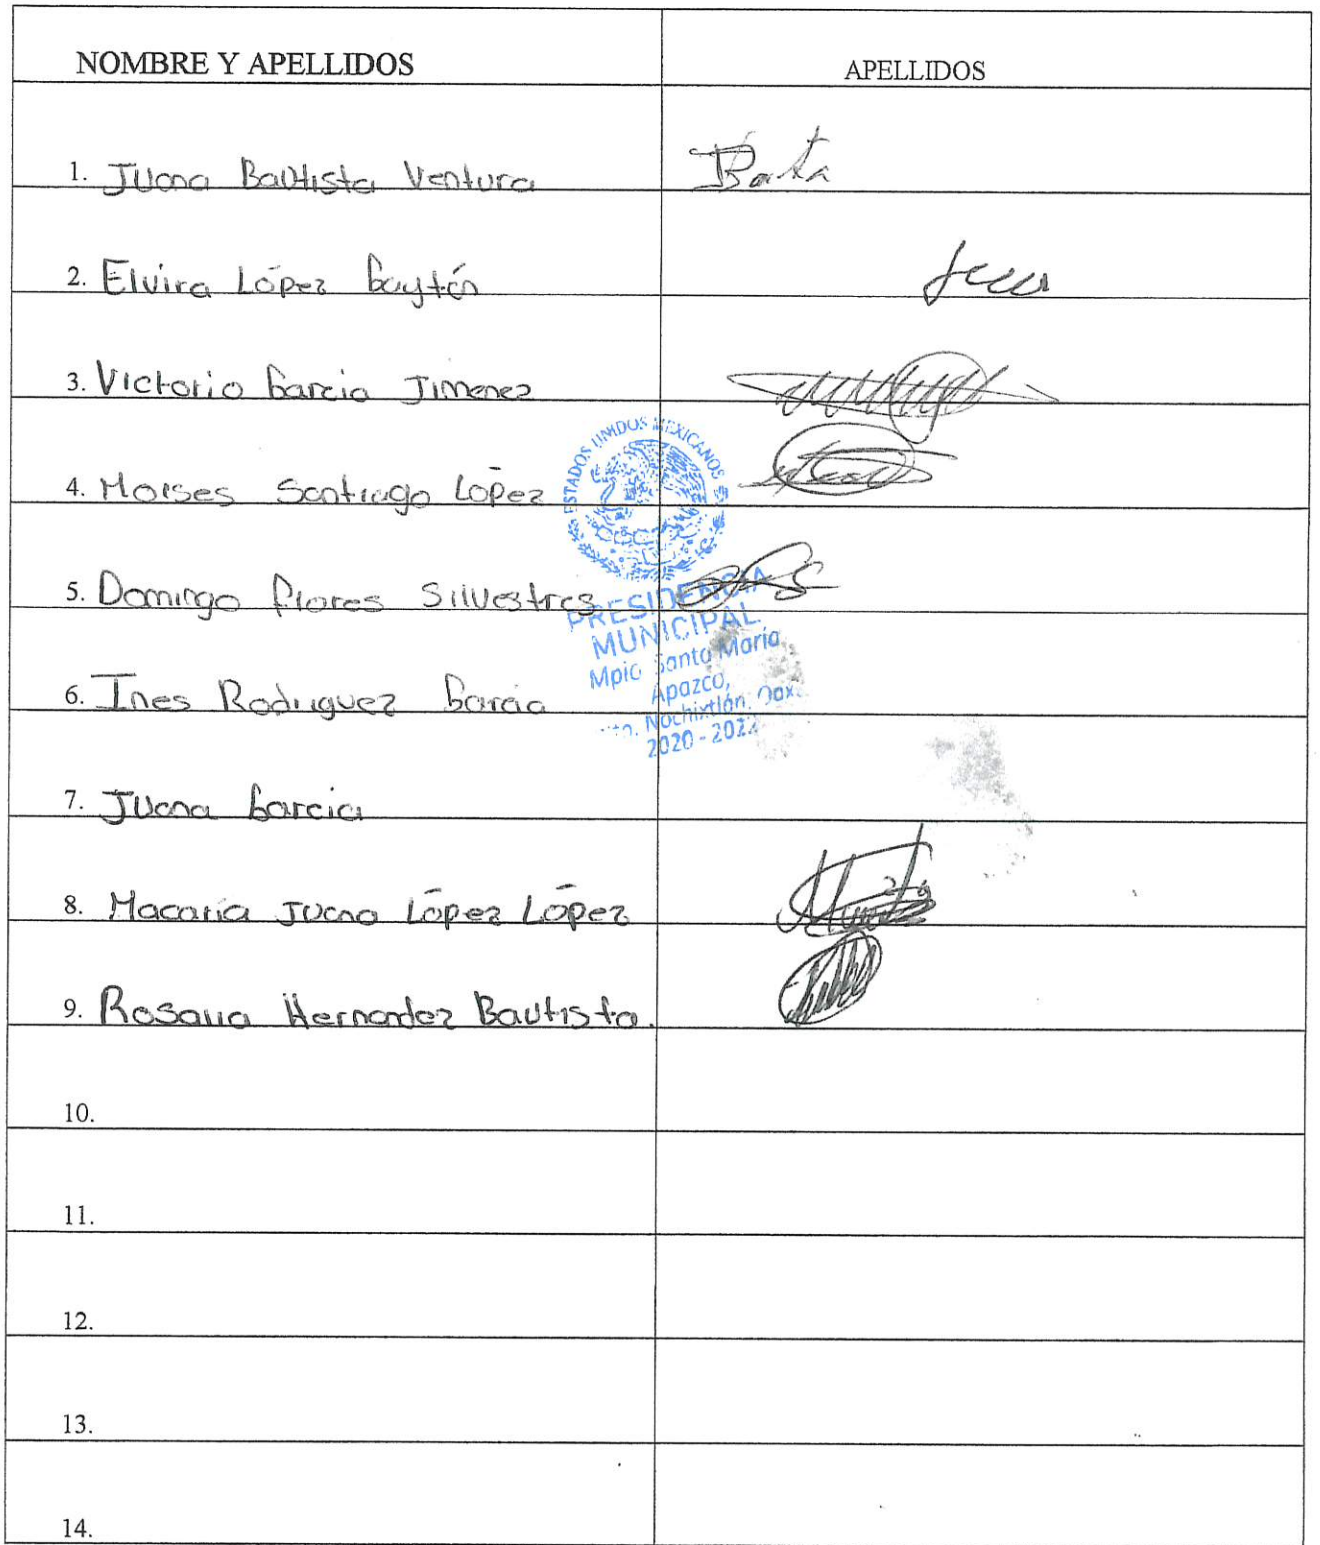 NOMBRE Y APELLIDOS APELLIDOS
1. Juana Bautista Ventura
2. Elvira López Gaytán
3. Victorio Garcia Jimenez
4. Moises Santiago López
5. Domingo Flores Silvestres
6. Ines Rodriguez Garcia
7. Juana Garcia
8. Macaria Juana López López
9. Rosalia Hernandez Bautista.
10.
11.
12.
13.
14.
ESTADOS UNIDOS MEXICANOS
PRESIDENCIA
MUNICIPAL
Mpio Santa María
Apazco,
Nochixtlán, Oax.
2020 - 2022